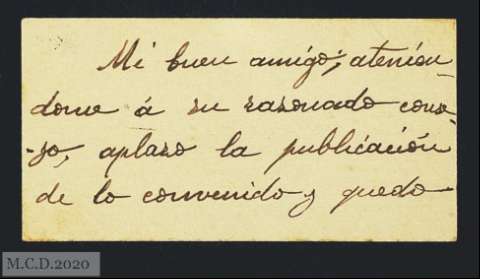 Mi buen amigo; atenien
dome á su razonado conse-
-jo, aplazo la publicación
de lo convenido y quedo
M.C.D.2020